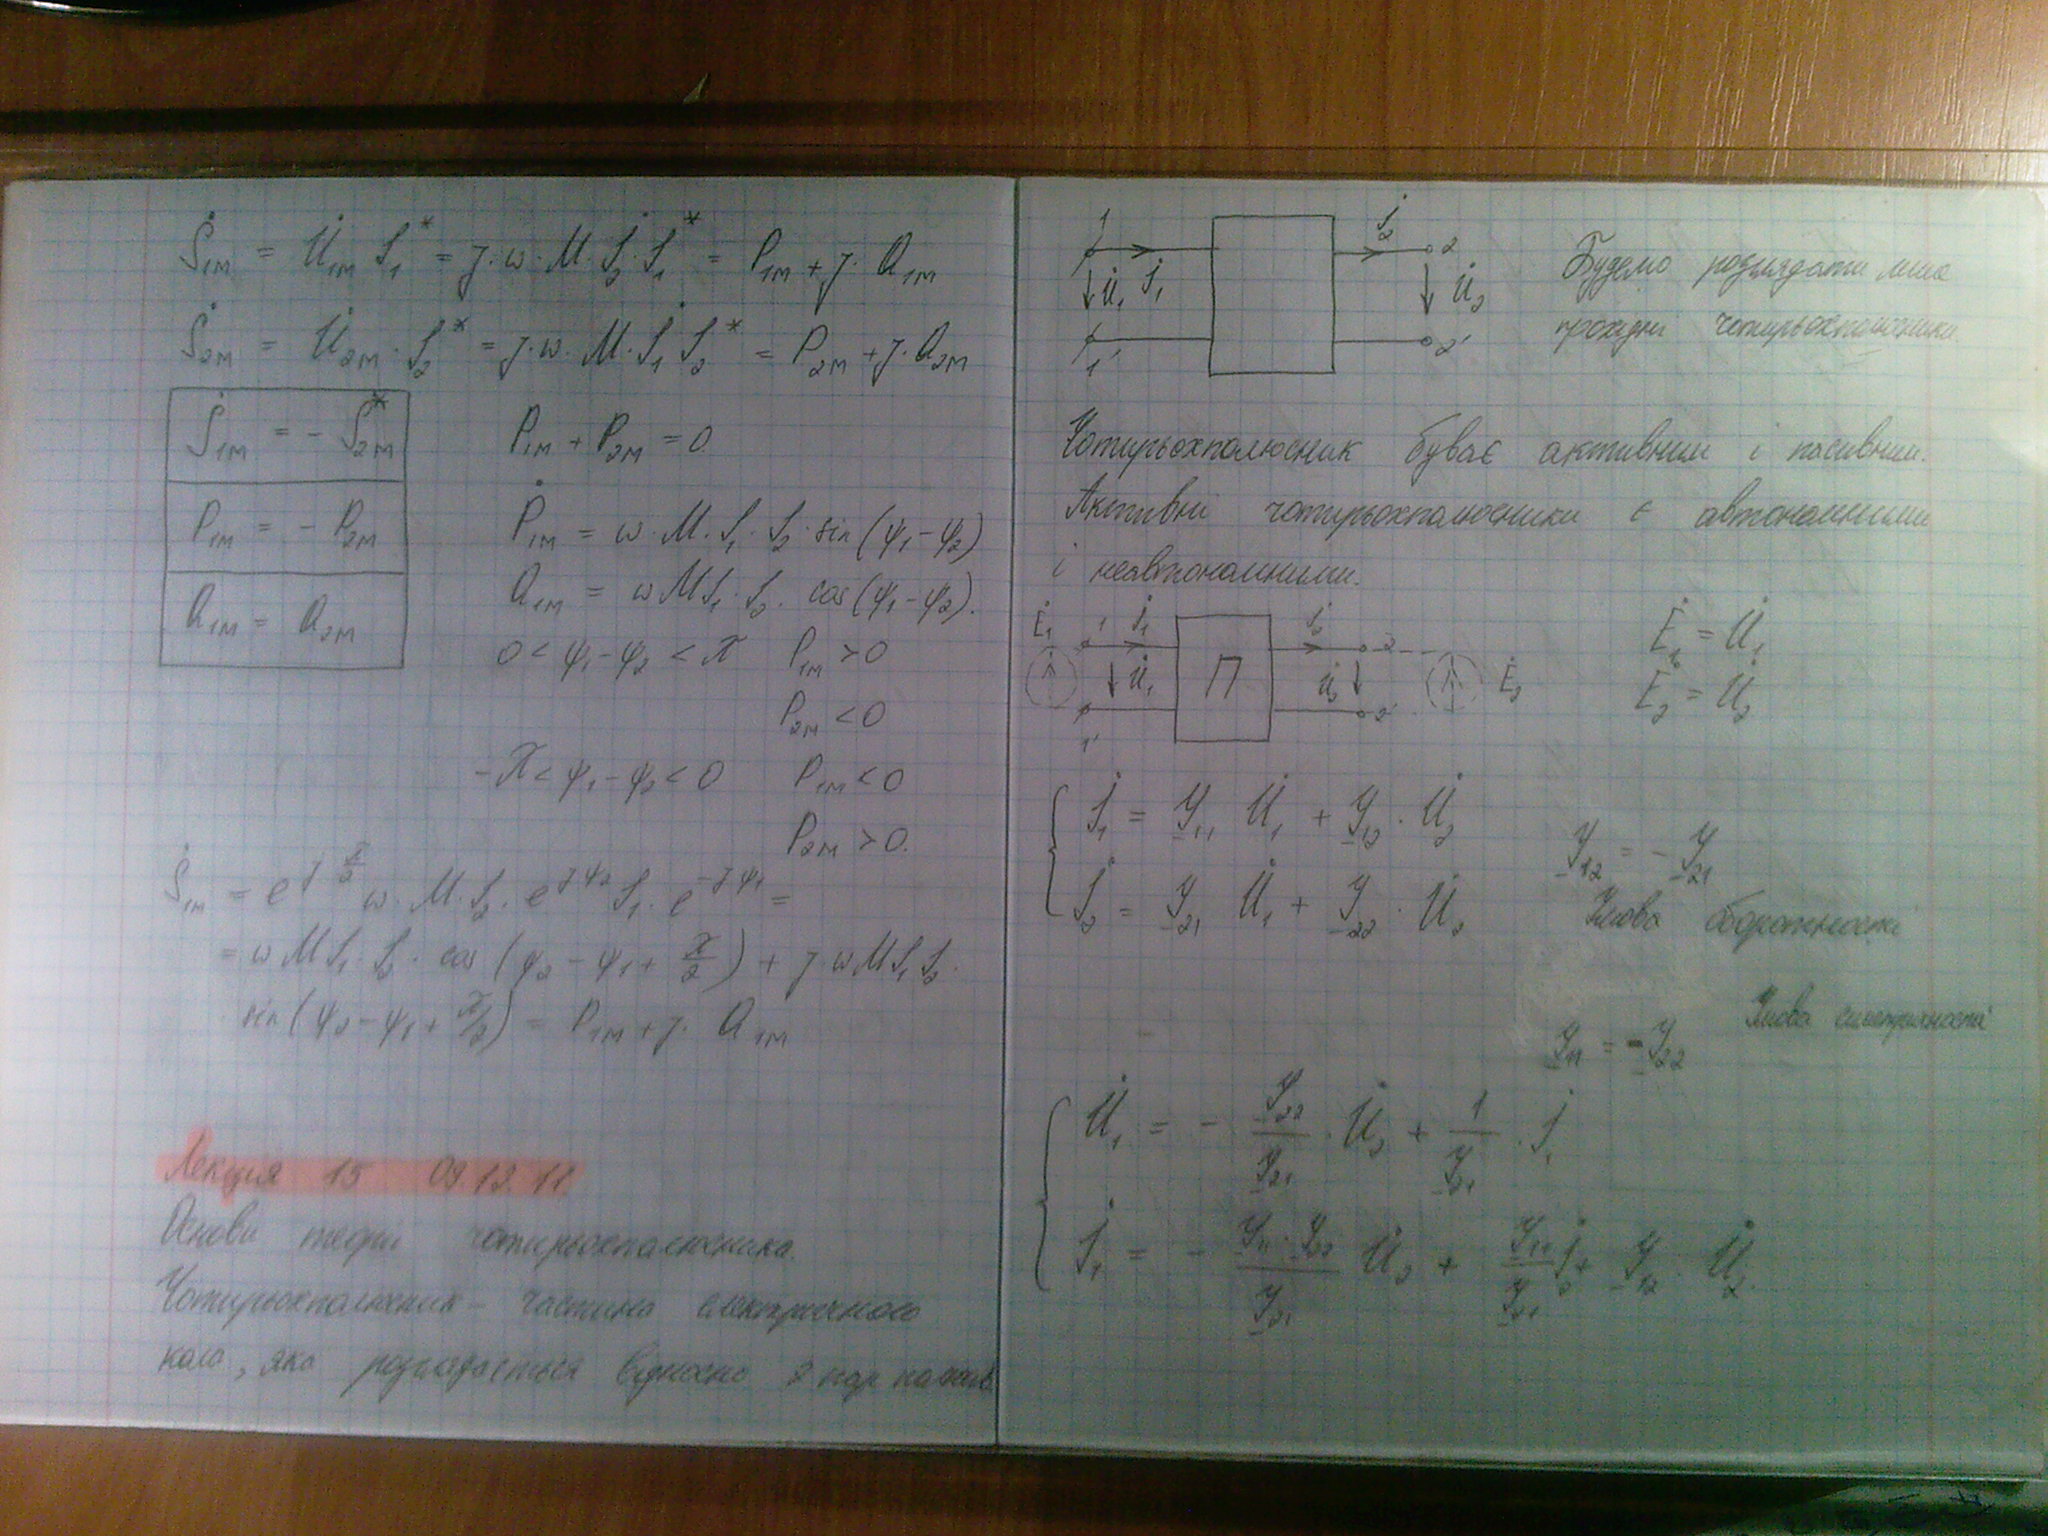 Ṡ₁ₘ = U̇₁ₘ İ₁* = j·ω·M·İ₂·İ₁* = P₁ₘ + j·Q₁ₘ
Ṡ₂ₘ = U̇₂ₘ·İ₂* = j·ω·M·İ₁ İ₂* = P₂ₘ + j·Q₂ₘ
Ṡ₁ₘ = - Ṡ₂ₘ*
P₁ₘ = - P₂ₘ
Q₁ₘ = Q₂ₘ
P₁ₘ + P₂ₘ = 0
Ṗ₁ₘ = ω·M·I₁·I₂·sin(ψ₁-ψ₂)
Q₁ₘ = ωMI₁·I₂·cos(ψ₁-ψ₂).
0 < ψ₁-ψ₂ < π P₁ₘ > 0
P₂ₘ < 0
-π < ψ₁-ψ₂ < 0 P₁ₘ < 0
P₂ₘ > 0.
Ṡ₁ₘ = e^(j π/2) ω·M·I₂·e^(jψ₂) I₁·e^(-jψ₁) =
= ωMI₁·I₂·cos(ψ₂-ψ₁+π/2) + j·ωMI₁I₂·
·sin(ψ₂-ψ₁+π/2) = P₁ₘ + j·Q₁ₘ
Лекція 15 09.12.11
Основи теорії чотирьохполюсника.
Чотирьохполюсник - частина електричного
кола, яка розглядається відносно 2 пар
1 İ₁ U̇₁ 1' İ₂ 2 U̇₂ 2'
Будемо розглядати лише
прохідні чотирьохполюсники.
Чотирьохполюсник буває активним і пасивним.
Активні чотирьохполюсники є автономними
і неавтономними.
Ė₁ 1 İ₁ U̇₁ 1' П İ₂ 2 U̇₂ 2' Ė₂
Ė₁ = U̇₁
Ė₂ = U̇₂
İ₁ = Y₁₁ U̇₁ + Y₁₂·U̇₂
İ₂ = Y₂₁ U̇₁ + Y₂₂·U̇₂
Y₁₂ = - Y₂₁
Умова оборотності
Умова симетричності
Y₁₁ = - Y₂₂
U̇₁ = - Y₂₂/Y₂₁·U̇₂ + 1/Y₂₁·İ
İ₁ = - Y₁₁·Y₂₂/Y₂₁ U̇₂ + Y₁₁/Y₂₁ İ₂ + Y₁₂ U̇₂.